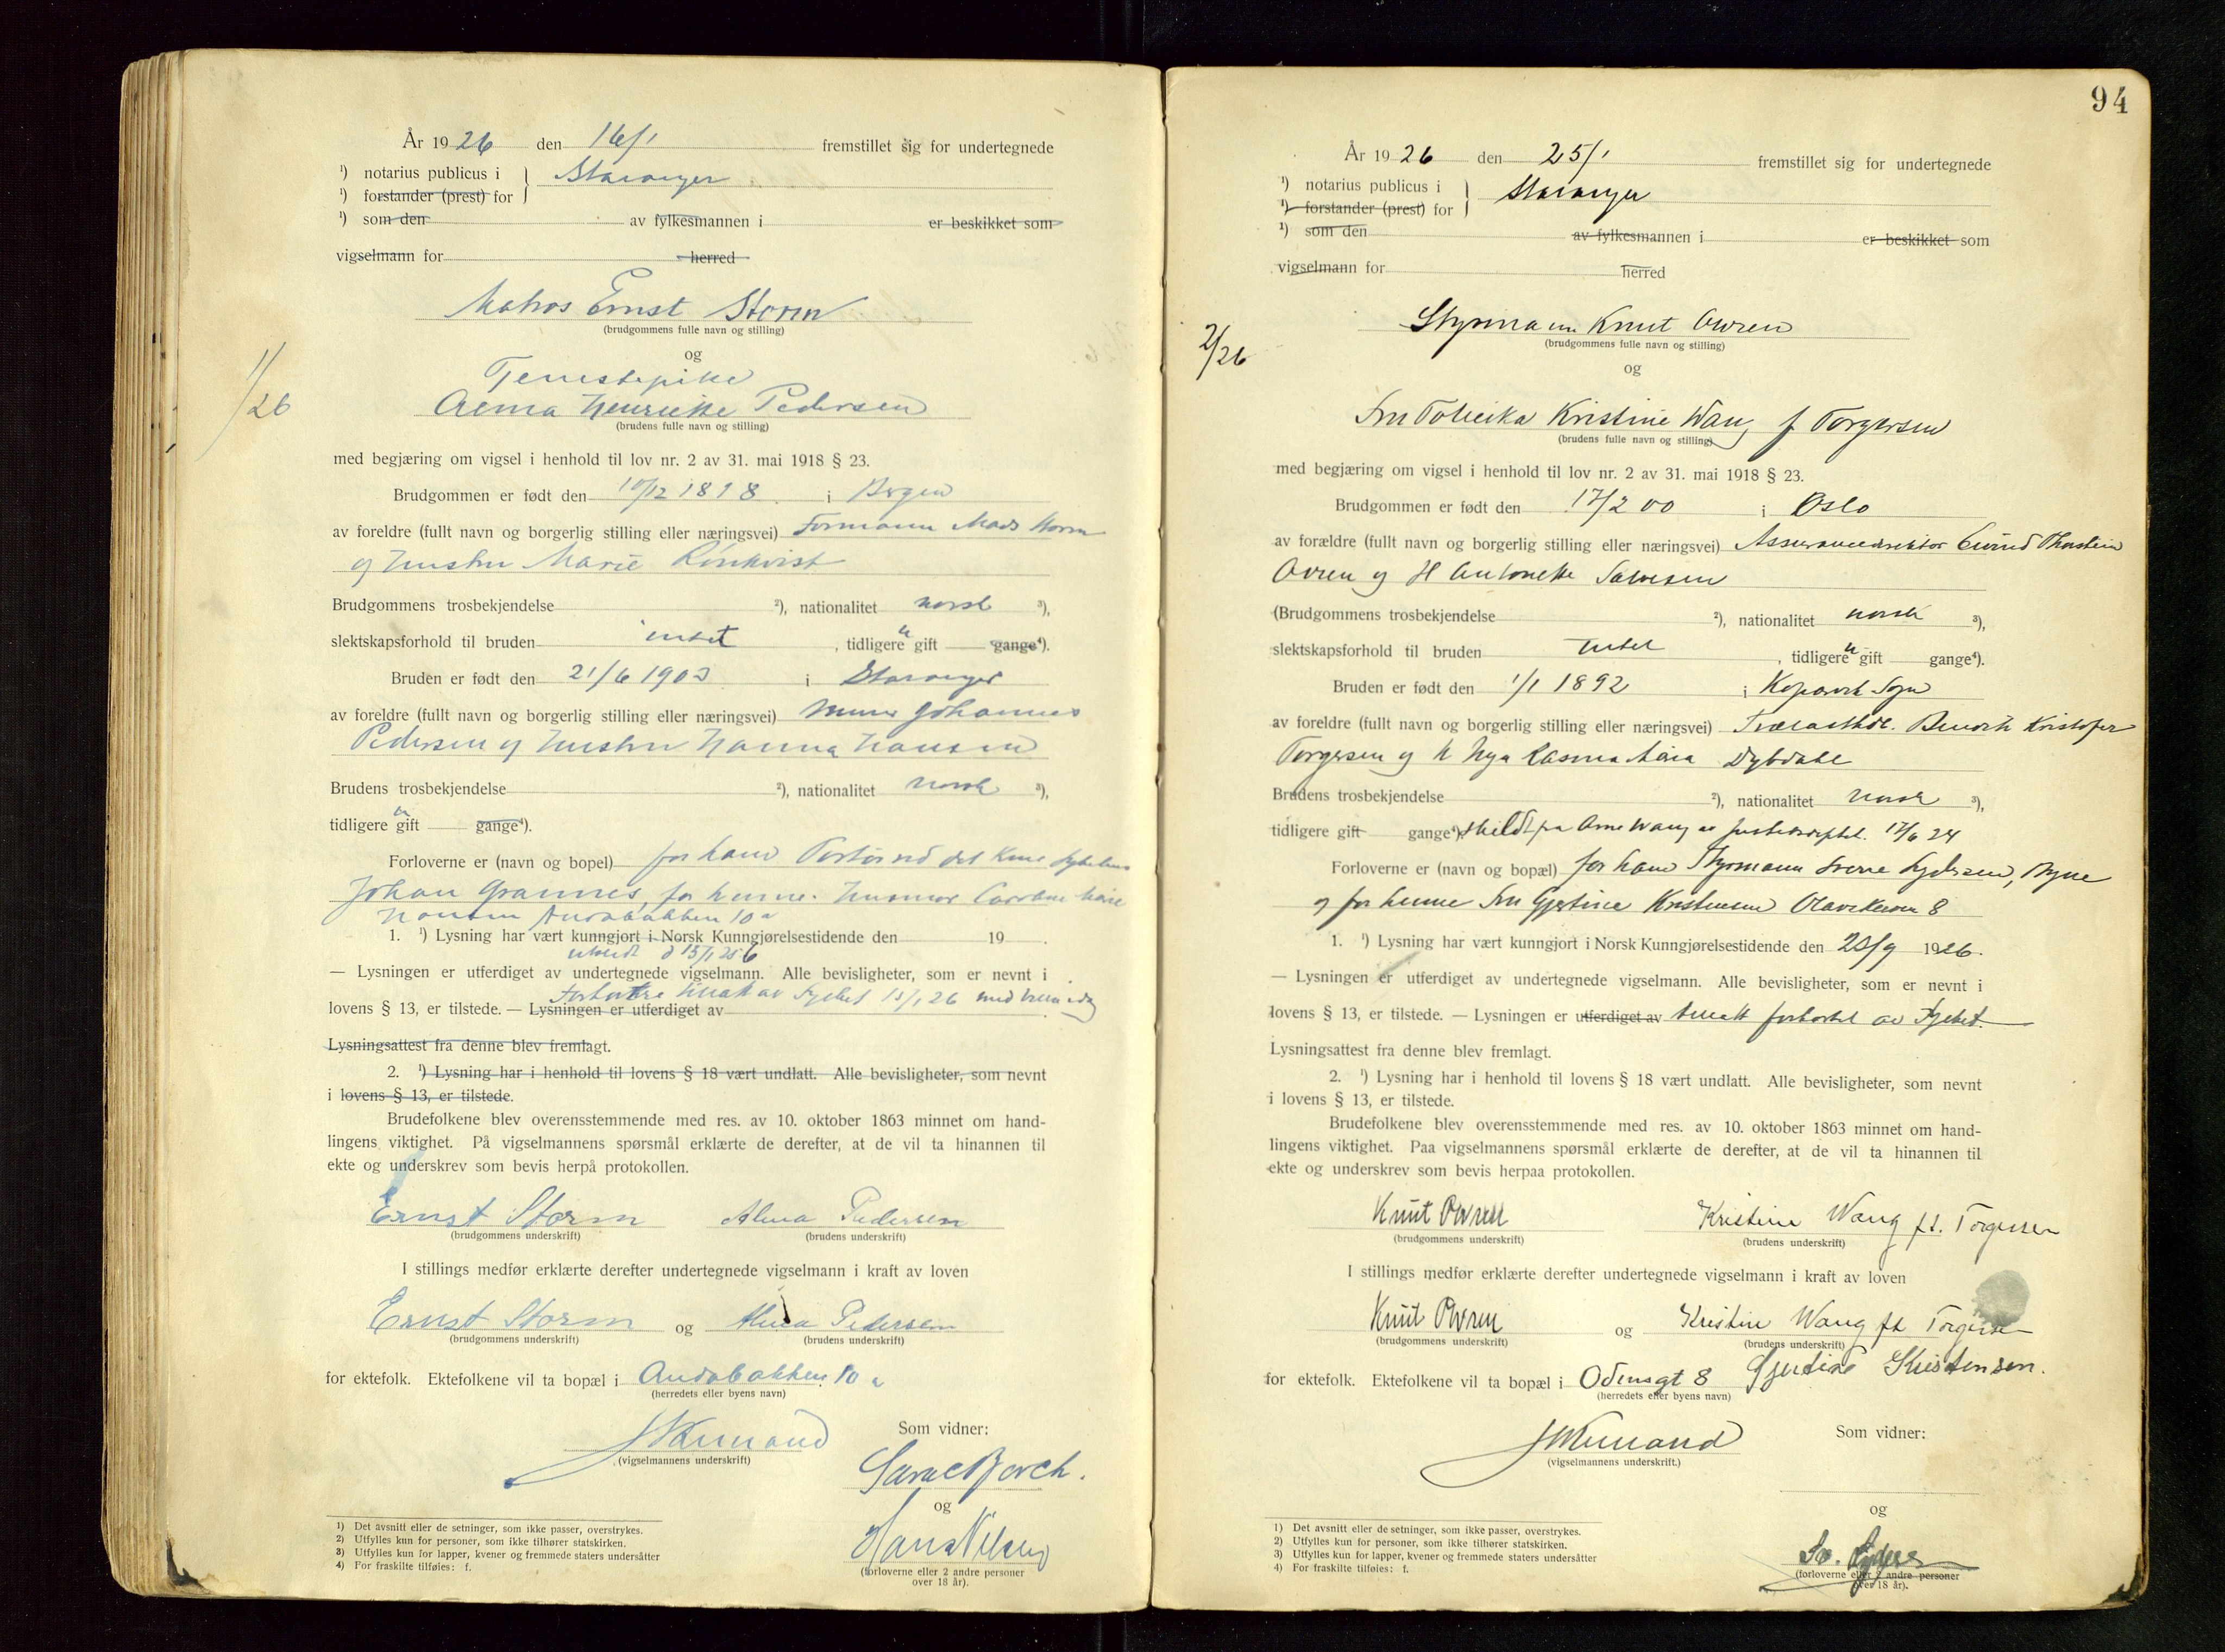 År 1926 den 16/1 fremstillet sig for undertegnede
¹) notarius publicus i } Stavanger
¹) forstander (prest) for
¹) som den av fylkesmannen i er beskikket som
vigselmann for herred
1/26
Matros Ernst Storm
(brudgommens fulle navn og stilling)
og
Tjenestepike
Alma Henriette Pedersen
(brudens fulle navn og stilling)
med begjæring om vigsel i henhold til lov nr. 2 av 31. mai 1918 § 23.
Brudgommen er født den 10/12 1898 i Bergen
av foreldre (fullt navn og borgerlig stilling eller næringsvei) Formann Mads Storm
og hustru Marie Rönkvist
Brudgommens trosbekjendelse ²), nationalitet norsk ³),
slektskapsforhold til bruden intet , tidligere u gift gange⁴).
Bruden er født den 21/6 1903 i Stavanger
av foreldre (fullt navn og borgerlig stilling eller næringsvei) Murer Johannes
Pedersen og hustru Hanna Hansen
Brudens trosbekjendelse ²), nationalitet norsk ³),
tidligere u gift gange⁴).
Forloverne er (navn og bopel) for ham
Johan Grannes, for henne:
Hansen Andabakken 10a
1. ¹) Lysning har vært kunngjort i Norsk Kunngjørelsestidende den 19 .
— Lysningen er utferdiget av undertegnede vigselmann. Alle bevisligheter, som er nevnt i
lovens § 13, er tilstede. — Lysningen er utferdiget av
Lysningsattest fra denne blev fremlagt.
2. ¹) Lysning har i henhold til lovens § 18 vært undlatt. Alle bevisligheter, som nevnt
i lovens § 13, er tilstede.
Brudefolkene blev overensstemmende med res. av 10. oktober 1863 minnet om hand-
lingens viktighet. På vigselmannens spørsmål erklærte de derefter, at de vil ta hinannen til
ekte og underskrev som bevis herpå protokollen.
Ernst Storm Alma Pedersen
(brudgommens underskrift) (brudens underskrift)
I stillings medfør erklærte derefter undertegnede vigselmann i kraft av loven
Ernst Storm og Alma Pedersen
(brudgommens underskrift) (brudens underskrift)
for ektefolk. Ektefolkene vil ta bopæl i Andabakken 10 a
(herredets eller byens navn)
Som vidner:
(vigselmannens underskrift)
og
Hans Nilsen
(forloverne eller 2 andre personer
over 18 år).
1) Det avsnitt eller de setninger, som ikke passer, overstrykes.
2) Utfylles kun for personer, som ikke tilhører statskirken.
3) Utfylles kun for lapper, kvener og fremmede staters undersåtter
4) For fraskilte tilføies: f.
94
År 1926 den 25/1 fremstillet sig for undertegnede
¹) notarius publicus i } Stavanger
¹) forstander (prest) for
¹) som den av fylkesmannen i er beskikket som
vigselmann for herred
2/26
Styrmann Knut Owren
(brudgommens fulle navn og stilling)
og
Fru Kristine Wang f Torgersen
(brudens fulle navn og stilling)
med begjæring om vigsel i henhold til lov nr. 2 av 31. mai 1918 § 23.
Brudgommen er født den 17/2 00 i Oslo
av forældre (fullt navn og borgerlig stilling eller næringsvei) Assurancedirektør Eivind Thorstein
Owren og H Antonette Salvesen
(Brudgommens trosbekjendelse ²), nationalitet norsk ³),
slektskapsforhold til bruden intet , tidligere u gift gange⁴).
Bruden er født den 1/1 1892 i Kopervik Sogn
av foreldre (fullt navn og borgerlig stilling eller næringsvei) Trælasthdl. Kristofer
Torgersen og H Dybdahl
Brudens trosbekjendelse ²), nationalitet norsk ³),
tidligere gift gange⁴) skildt fra Arne Wang 17/6 24
Forloverne er (navn og bopæl) for ham Styrmann Sverre
og for henne Fru Gjertine Kristensen 8
1. ¹) Lysning har vært kunngjort i Norsk Kunngjørelsestidende den 1926.
— Lysningen er utferdiget av undertegnede vigselmann. Alle bevisligheter, som er nevnt i
lovens § 13, er tilstede. — Lysningen er utferdiget av
Lysningsattest fra denne blev fremlagt.
2. ¹) Lysning har i henhold til lovens § 18 vært undlatt. Alle bevisligheter, som nevnt
i lovens § 13, er tilstede.
Brudefolkene blev overensstemmende med res. av 10. oktober 1863 minnet om hand-
lingens viktighet. Paa vigselmannens spørsmål erklærte de derefter, at de vil ta hinannen til
ekte og underskrev som bevis herpaa protokollen.
Knut Owren Kristine Wang ft. Torgersen
(brudgommens underskrift) (brudens underskrift)
I stillings medfør erklærte derefter undertegnede vigselmann i kraft av loven
Knut Owren og Kristine Wang ft Torgersen
(brudgommens underskrift) (brudens underskrift)
for ektefolk. Ektefolkene vil ta bopæl i Odensgt 8 Gjertine Kristensen.
(herredets eller byens navn)
Som vidner:
(vigselmannens underskrift.)
og
(forloverne eller 2 andre personer
over 18 år).
1) Det avsnitt eller de setninger, som ikke passer, overstrykes.
2) Utfylles kun for personer, som ikke tilhører statskirken.
3) Utfylles kun for lapper, kvener og fremmede staters undersåtter
4) For fraskilte tilføies: f.